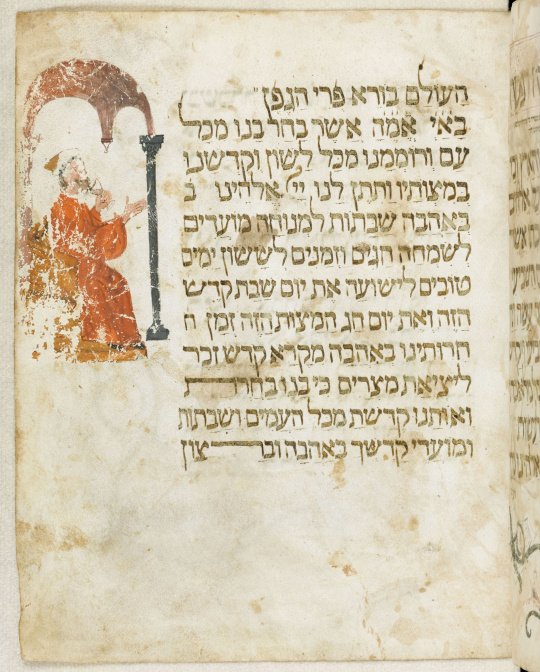 העולם בורא פרי הגפן
באי אמה אשר בחר בנו מכל
עם ורוממנו מכל לשון וקדשנו
במצותיו ותתן לנו יי אלהינו ב
באהבה שבתות למנוחה מועדים
לשמחה חגים וזמנים לששון ימים
טובים לישועה את יום שבת קדש
הזה ואת יום חג המצות הזה זמן ח
חרותינו באהבה מקרא קדש זכר
ליציאת מצרים כי בנו בחרת
ואותנו קדשת מכל העמים ושבתות
ומועדי קדשך באהבה וברצון